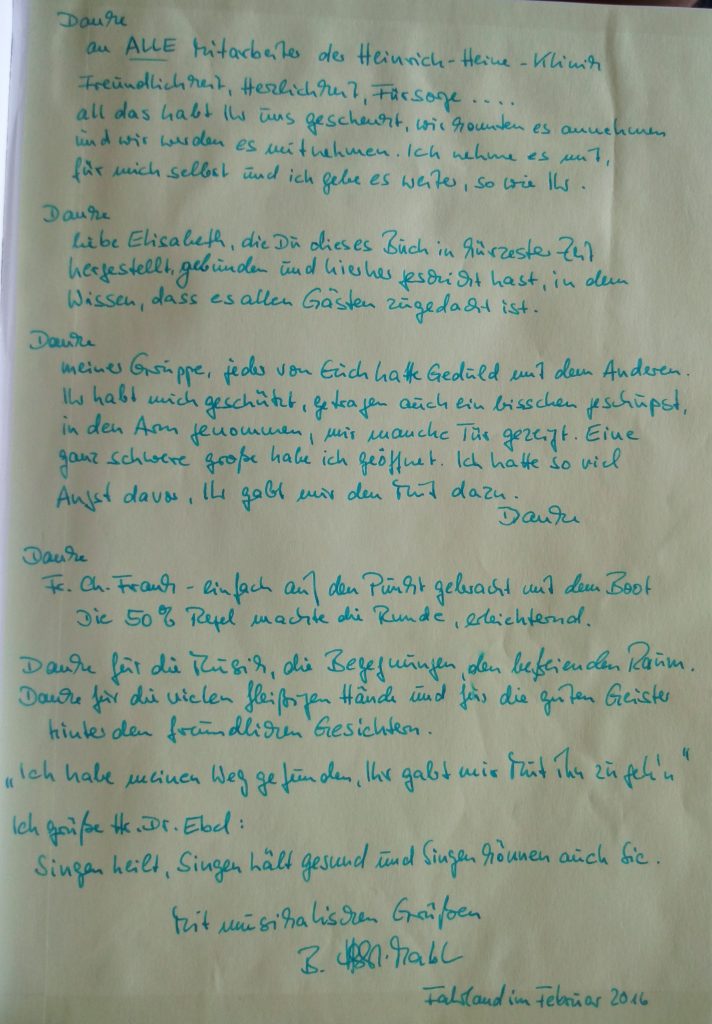 Danke
an ALLE Mitarbeiter der Heinrich-Heine-Klinik
Freundlichkeit, Herzlichkeit, Fürsorge ....
all das habt Ihr uns geschenkt, wir konnten es annehmen
und wir werden es mitnehmen. Ich nehme es mit,
für mich selbst und ich gebe es weiter, so wie Ihr.
Danke
liebe Elisabeth, die Du dieses Buch in kürzester Zeit
hergestellt, gebunden und hierher geschickt hast, in dem
Wissen, dass es allen Gästen zugedacht ist.
Danke
meiner Gruppe, jeder von Euch hatte Geduld mit dem Anderen.
Ihr habt mich geschützt, getragen auch ein bisschen geschupst,
in den Arm genommen, mir manche Tür gezeigt. Eine
ganz schwere große habe ich geöffnet. Ich hatte so viel
Angst davor, Ihr gabt mir den Mut dazu.
Danke
Danke
Fr. Ch. Frank - einfach auf den Punkt gebracht mit dem Boot
Die 50% Regel machte die Runde, erleichternd.
Danke für die Musik, die Begegnungen, den befreienden Raum.
Danke für die vielen fleißigen Hände und für die guten Geister
hinter den freundlichen Gesichtern.
„Ich habe meinen Weg gefunden, Ihr gabt mir Mut ihn zu geh'n"
Ich grüße Hr. Dr. Ebel:
Singen heilt, Singen hält gesund und Singen können auch Sie.
Mit musikalischen Grüßen
B.
Fahrland im Februar 2016